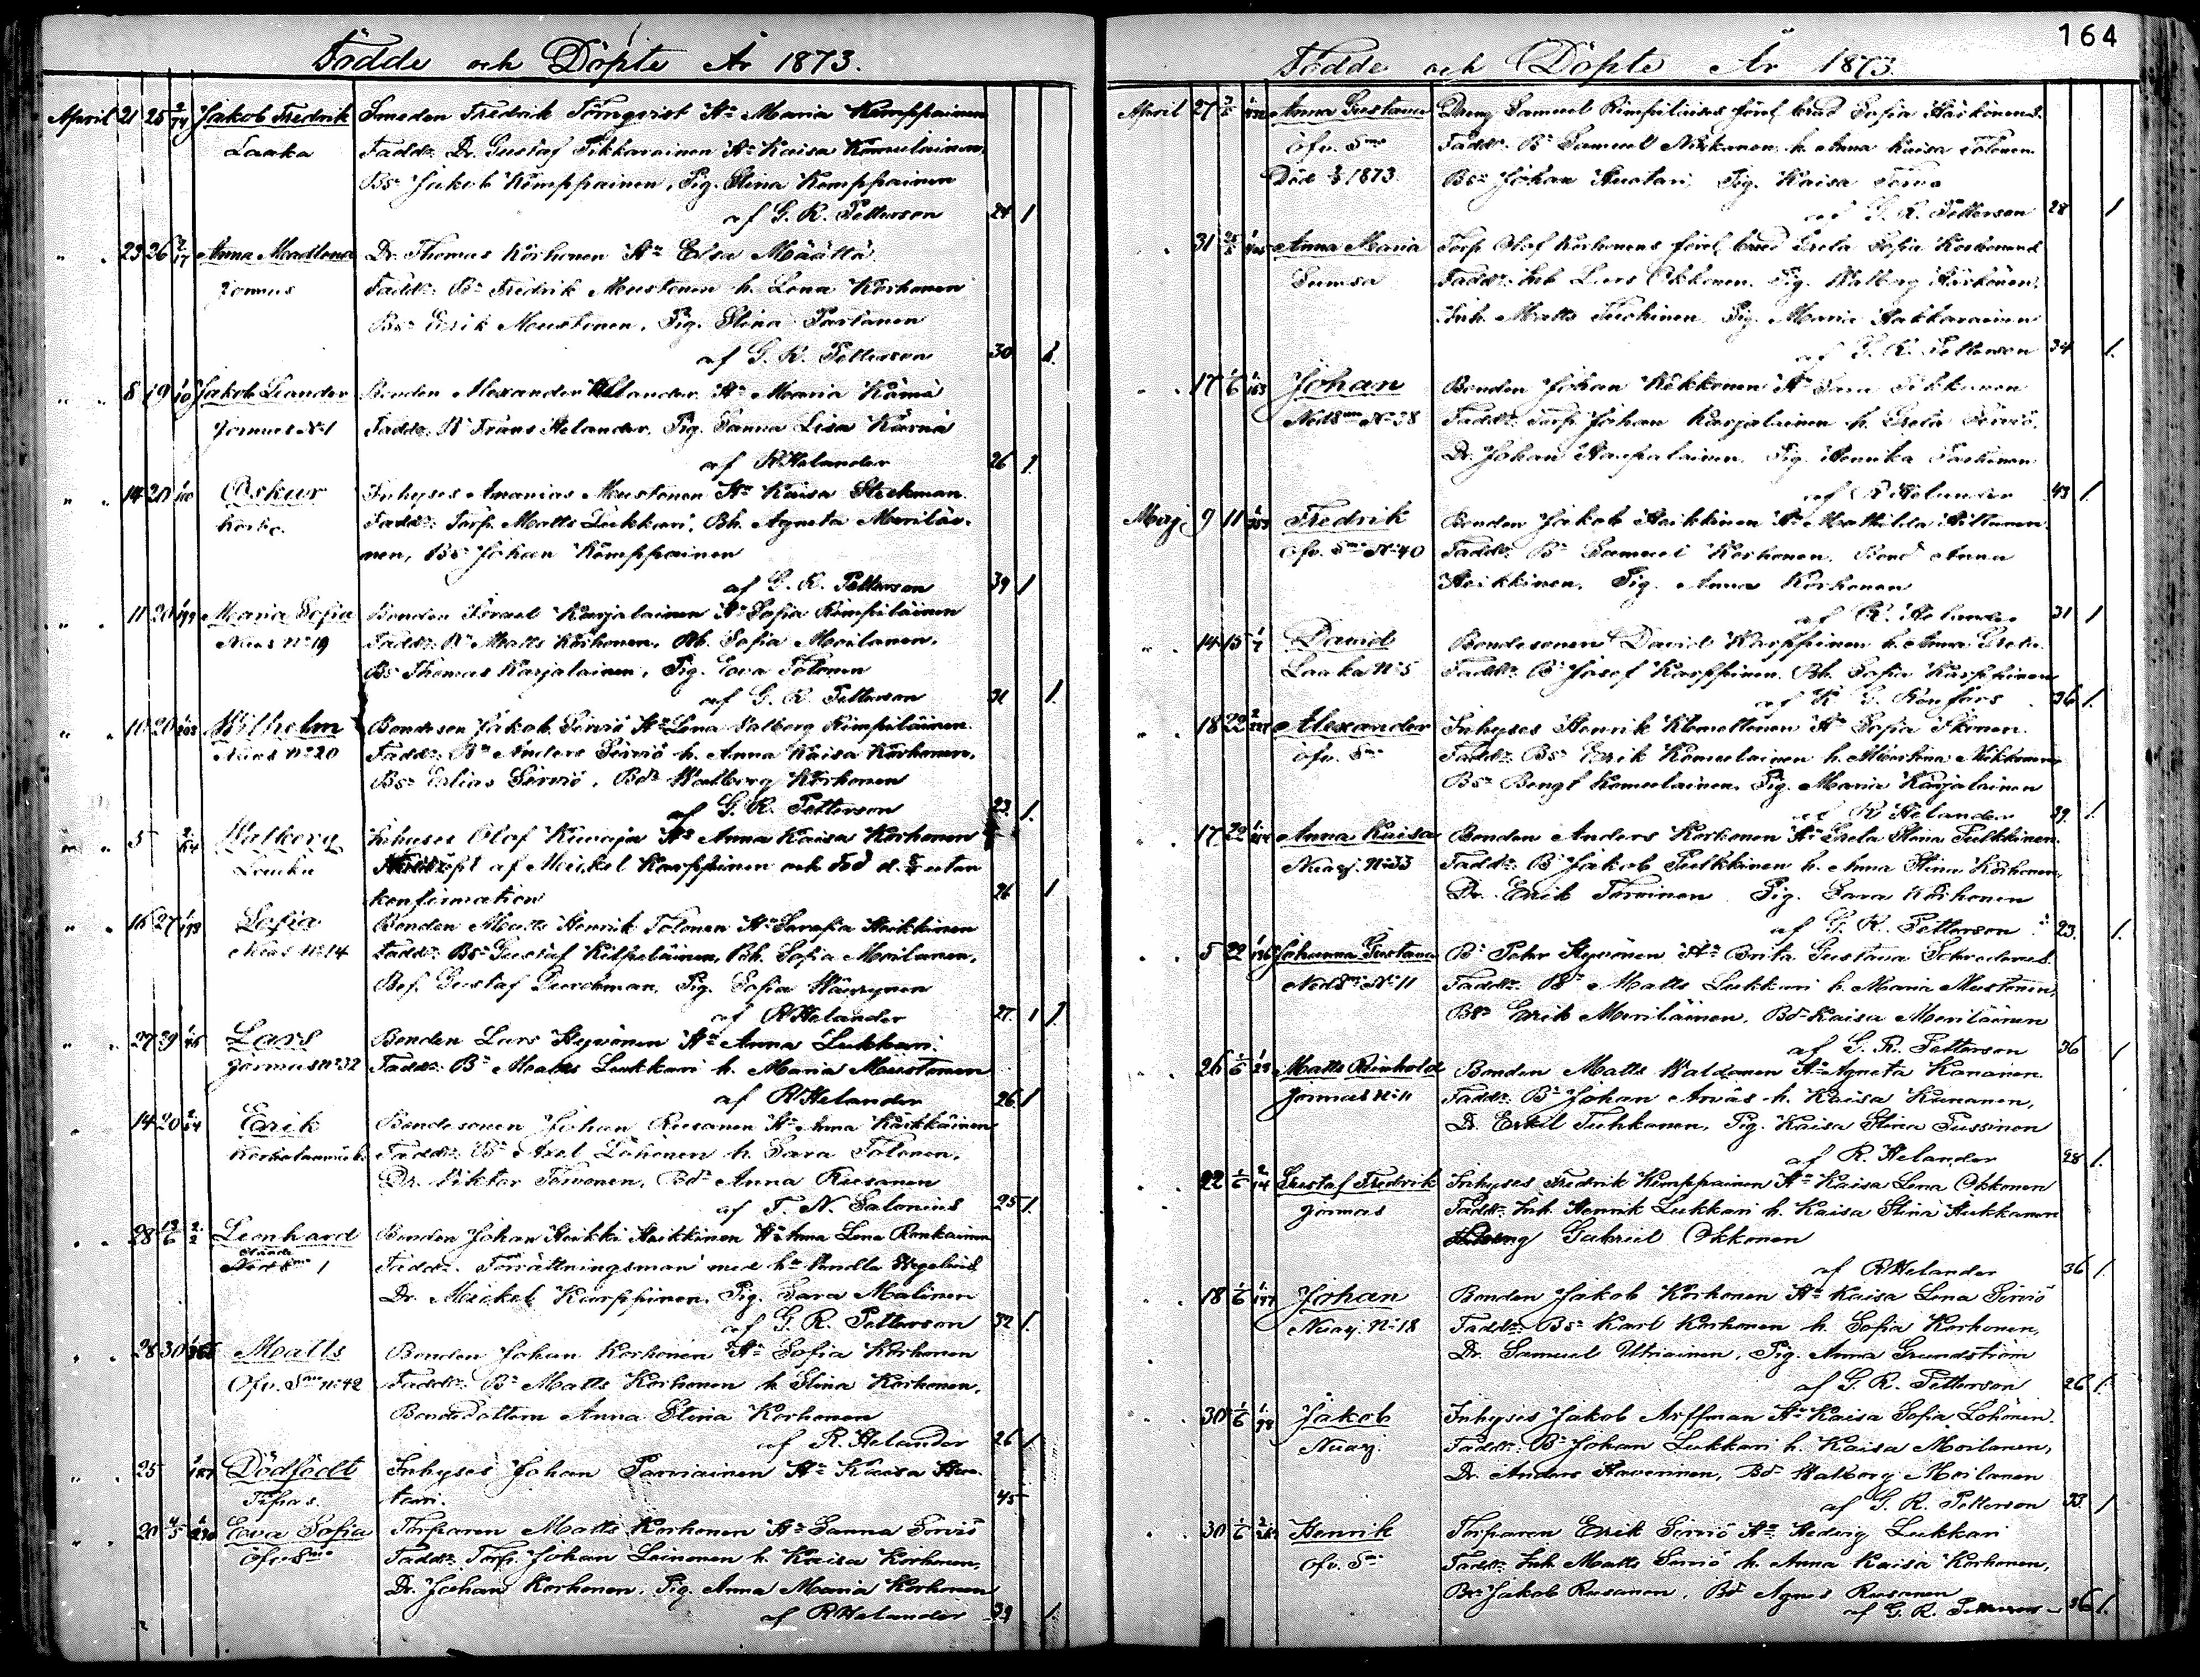 164
Födde och Döpte År 1873.
April 21 25 Jakob Fredrik Smeden Fredrik Törnqvist Hu Maria Kemppainen
Laaka Fadd: Dr. Gustaf Pikkarainen Hu Kaisa Komulainen,
Bs Jakob Kemppainen, Pig. Stina Kemppainen
af G. R. Petterson 24 1
" " 23 26 Anna Magdlena Dr. Thomas Korhonen Hu Elsa Määttä
Jormus Fadd: Bn Fredrik Mustonen h. Lena Korhonen
Bs Erik Mustonen, Pig. Stina Partanen
af G. R. Petterson 30 1.
" " 8 19 Jakob Leander Bonden Alexander Helander Hu Maria Kärnä
Jormus No 1 Fadd: B Frans Helander, Pig. Sanna Lisa Kärnä
af R Helander 26 1
" " 14 20 Oskar Inhyses Ananias Mustonen Hu Kaisa Stickman
Fadd: Torp. Matts Lukkari, Bh. Agneta Meriläi-
nen, Bs Johan Kemppainen
af G. R. Petterson 39 1
" " 11 20 Maria Sofia Bonden Israel Karjalainen Hu Sofia Rimpiläinen
No 19 Fadd: Bn Matts Korhonen, Bh. Sofia Moilanen,
Bs Thomas Karjalainen, Pig. Eva Tolonen
af G. R. Petterson 31 1.
" " 10 20 Wilhelm Bondeson Jakob Serviö Hu Lena Valborg Rimpiläinen
No 20 Fadd: Bn Anders Serviö h. Anna Kaisa Korhonen,
Bs Elias Serviö, Bd Walborg Korhonen
af G. R. Petterson 23 1.
" " 5 Walborg Inhyses Olof Kuvaja Hu Anna Kaisa Korhonen
af Meickel Karppinen och död d. utan
konfirmation 26 1
" " 16 27 Sofia Bonden Matts Henrik Tolonen Hu Serafia Heikkinen
No 14 Fadd: Bs Gustaf Kilpeläinen, Bh. Sofia Moilanen,
Gustaf Durchman, Pig. Sofia Häyrynen
af R Helander 27. 1 1.
" " 27 29 Lars Bonden Lars Hyvönen Hu Anna Lukkari.
Jormus No 32 Fadd: Bn Matts Lukkari h. Maria Mustonen
af R Helander 26 1
" 14 20 Erik Bondesonen Johan Rusanen Hu Anna Kärkkäinen
Fadd: Bn Axel Löhönen h. Sara Tolonen,
Dr. Viktor Tervonen, Bd Anna Rusanen
af T. N. Salonius 25 1.
" " 28 Leonhard Bonden Johan Heikki Heikkinen Hu Anna Lena Ronkainen
1 Fadd: Förrättningsman med hu Vendla Hegelius
Dr. Meickel Karppinen, Pig. Sara Malinen
af G. R. Petterson 32 1.
" " 28 30 Matts Bonden Johan Korhonen Hu Sofia Korhonen
Öfv. No 42 Fadd: Bn Matts Korhonen h. Stina Korhonen,
Bondedottern Anna Stina Korhonen
af R. Helander 26 1
" " 25 Dödfödt Inhyses Johan Parviainen Hu Kaisa Huo-
tari. 45
" " 20 Eva Sofia Torparen Matts Korhonen Hu Sanna Serviö
Fadd: Torp. Johan Leinonen h. Kaisa Korhonen,
Dr. Johan Korhonen, Pig. Anna Maria Korhonen
af R Helander 29 1.
Födde och Döpte År 1873.
April 27 Anna Gustava Dreng Samuel Rimpiläises förel. brud Sofia Härkönens.
Öfv. Fadd: Bn Samuel Nikkanen h. Anna Kaisa Tolonen
Död 1873. Bs Johan Huotari Pig. Kaisa Servo
af G. R. Petterson 28 1
" 31 Anna Maria Torp. Olof Korhonens förel. brud Greta Sofia Korhonens
Sumsa Fadd: Inh Lars Okkonen. Pig. Walborg Härkönen,
Inh. Matts Tuhinen Pig. Maria Hakkarainen
af G. R. Petterson 34 1.
" " 17 Johan Bonden Johan Kekkonen Hu
No 38 Fadd: Torp. Johan Karjalainen h. Greta Serviö,
Dr. Johan Haapalainen, Pig. Henrika Partanen
af R Helander 43 1
Maj 9 11 Fredrik Bonden Jakob Heikkinen Hu Mathilda Hiltunen
Öfv. No 40 Fadd: Bn Samuel Korhonen, Bond Anna
Heikkinen, Pig. Anna Korhonen
af R. Helander 31 1
" " 14 15 David Bondesonen David Karppinen h. Anna Greta
Laaka No 5 Fadd: Bn Josef Karppinen, Bh. Sofia Karppinen
af K. G. Rönfors 36 1.
" " 18 22 Alexander Inhyses Henrik Klemettinen Hu Sofia Ikonen
Öfv. Fadd: Bs Erik Komulainen h. Nikkanen
Bs Bengt Komulainen, Pig. Maria Karjalainen
af R Helander 39. 1.
17 22 Anna Kaisa Bonden Anders Korhonen Hu Greta Stina Pulkkinen
Nuasj. No 33 Fadd: Bn Jakob Pulkkinen h. Anna Stina Korhonen,
Dr. Erik Tervonen Pig. Sara Korhonen
af G. R. Petterson 23. 1.
" " 5 22 Johanna Gustava Bn Petter Hyvönen Hu Brita Gustava Schroderus
No 11 Fadd: Bn Matts Lukkari h. Maria Mustonen,
Bs Erik Meriläinen, Bd Kaisa Meriläinen
af G. R. Petterson 36 1
" " 26 Matts Reinhold Bonden Matts Waldemar Hu Agneta Kananen
Jormus No 11 Fadd: Bn Johan Arvas h. Kaisa Kananen,
D. Eskil Tuhkanen, Pig. Kaisa Stina Pussinen
af R. Helander 28 1.
" " 22 Gustaf Fredrik Inhyses Fredrik Kemppainen Hu Kaisa Lena Okkonen
Jormus Fadd: Inh Henrik Lukkari h. Kaisa Stina Heikkanen
Gabriel Okkonen
af R Helander 36 1.
" " 18 Johan Bonden Jakob Korhonen Hu Kaisa Lena Serviö
Nuasj. No 18 Fadd: Bs Karl Korhonen h. Sofia Korhonen,
Dr. Samuel Utriainen, Pig. Anna Grundström
af G. R. Petterson 26 1.
" " 30 Jakob Inhyses Jakob Arffman Hu Kaisa Sofia Lohönen
Nuasj. Fadd: Bn Johan Lukkari h. Kaisa Moilanen,
Dr. Anders Haverinen, Bd Walborg Moilanen
af G. R. Petterson 33 1
" " 30 Henrik Torparen Erik Serviö Hu Hedvig Lukkari
Öfv. Fadd: Inh Matts Serviö h. Anna Kaisa Korhonen,
Bs Jakob Rusanen, Bd Agnes Rusanen
af G. R. Petterson 36 1.